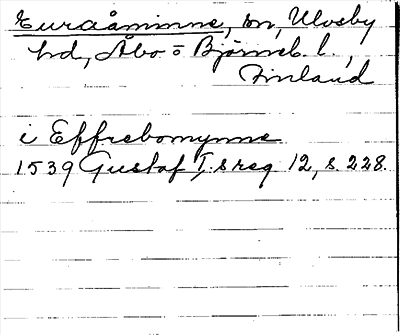 Euraåminne, sn, Ulvsby
hd, Åbo o Björneb. l.,
Finland
i Effrebomynne
1539 Gustaf I:s reg 12, s. 228.